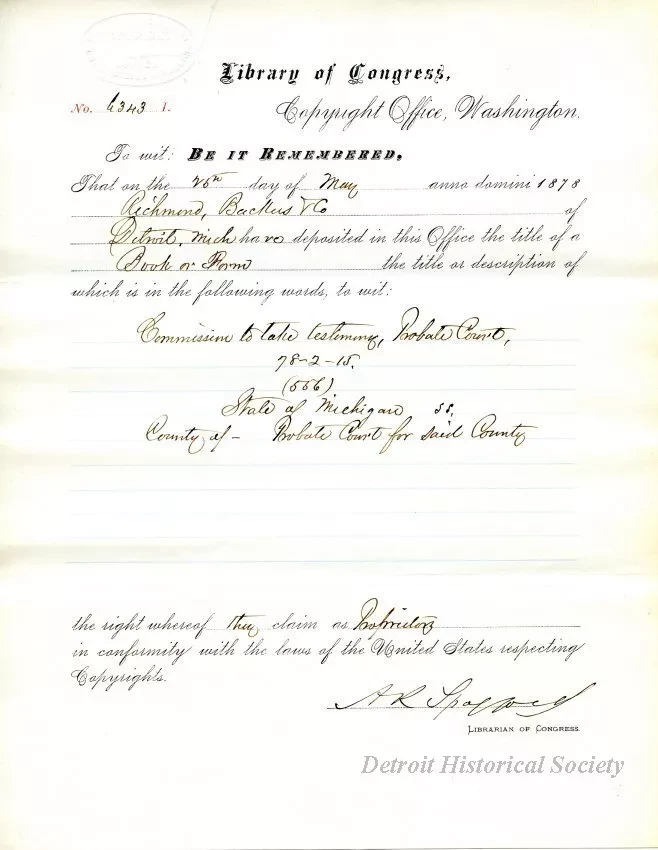 Library of Congress,
No. 6343 I.
Copyright Office, Washington.
To wit: BE IT REMEMBERED,
That on the 25th day of May anno domini 1878
Richmond, Backus & Co of
Detroit, Mich have deposited in this Office the title of a
Book or Form the title or description of
which is in the following words, to wit:
Commission to take testimony, Probate Court,
78-2-15.
(556)
State of Michigan ss.
County of - Probate Court for said County
the right whereof they claim as Proprietors
in conformity with the laws of the United States respecting
Copyrights.
A R Spofford
LIBRARIAN OF CONGRESS.
Detroit Historical Society